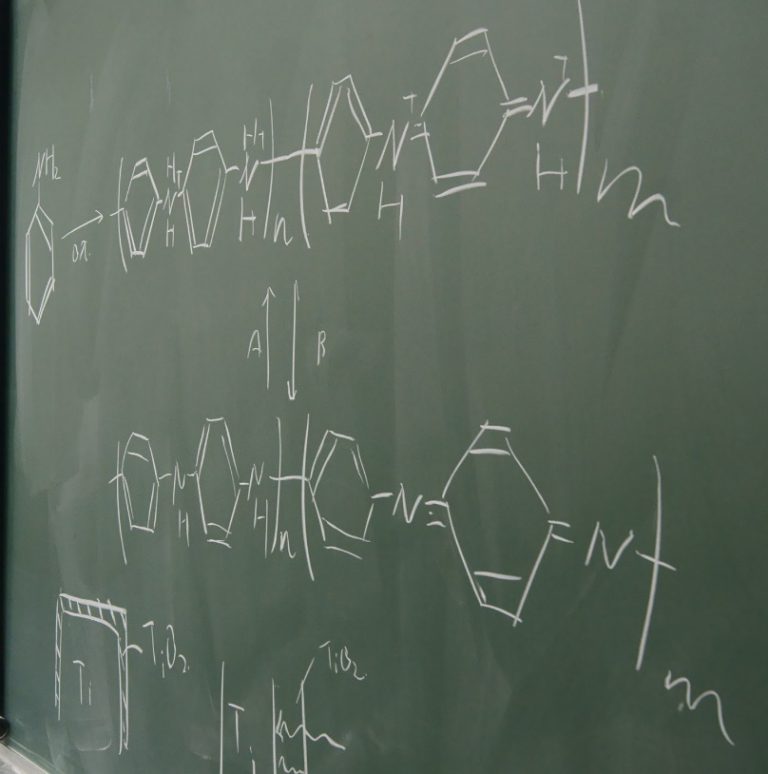 NH₂
ox.
H⁺ N H
H H N H
n
N⁺ H
N⁺ H
m
A B
N H
N H
n
N
N
m
Ti TiO₂
Ti TiO₂